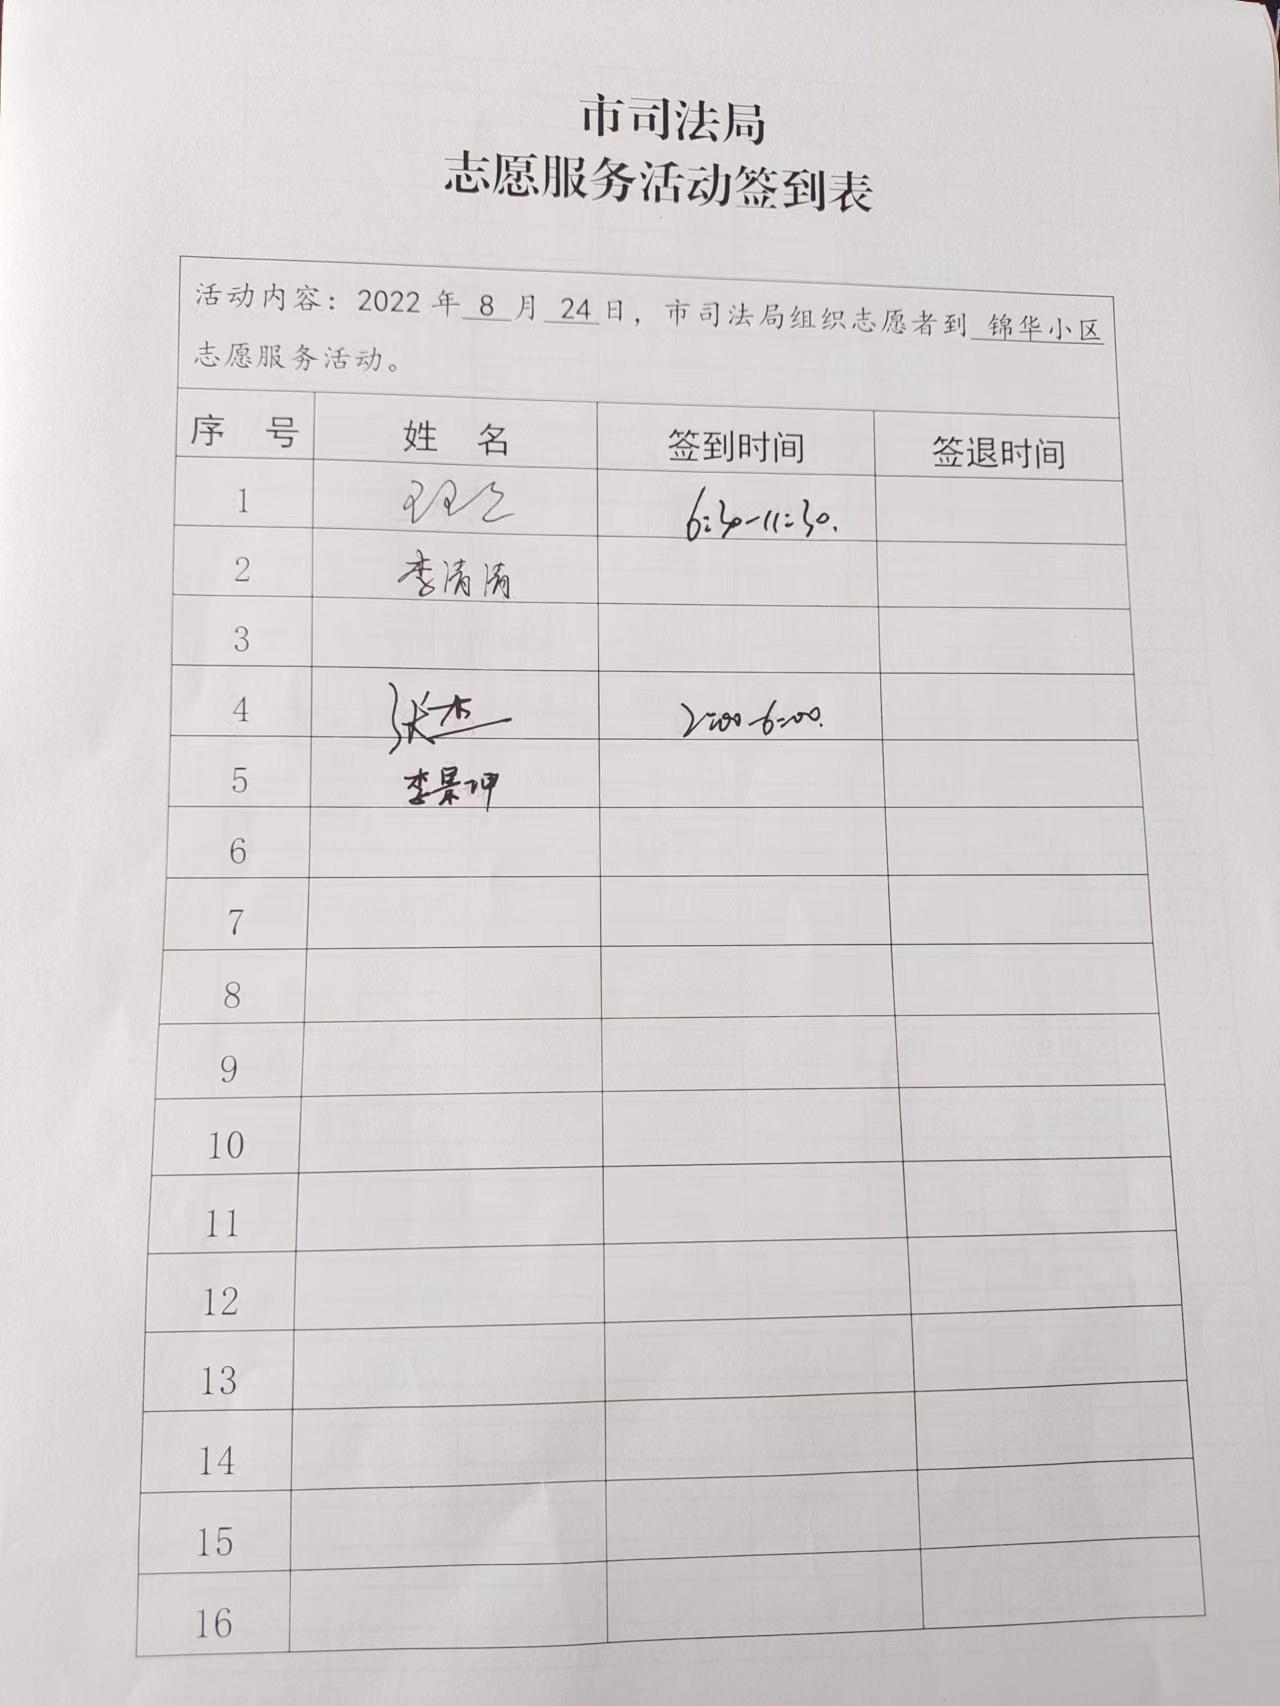 市司法局
志愿服务活动签到表
活动内容：2022 年 8 月 24 日，市司法局组织志愿者到 锦华小区
志愿服务活动。
序 号 姓 名 签到时间 签退时间
1 6:30-11:30.
2 李清清
3
4 张杰 2:00-6:00.
5 李景坤
6
7
8
9
10
11
12
13
14
15
16